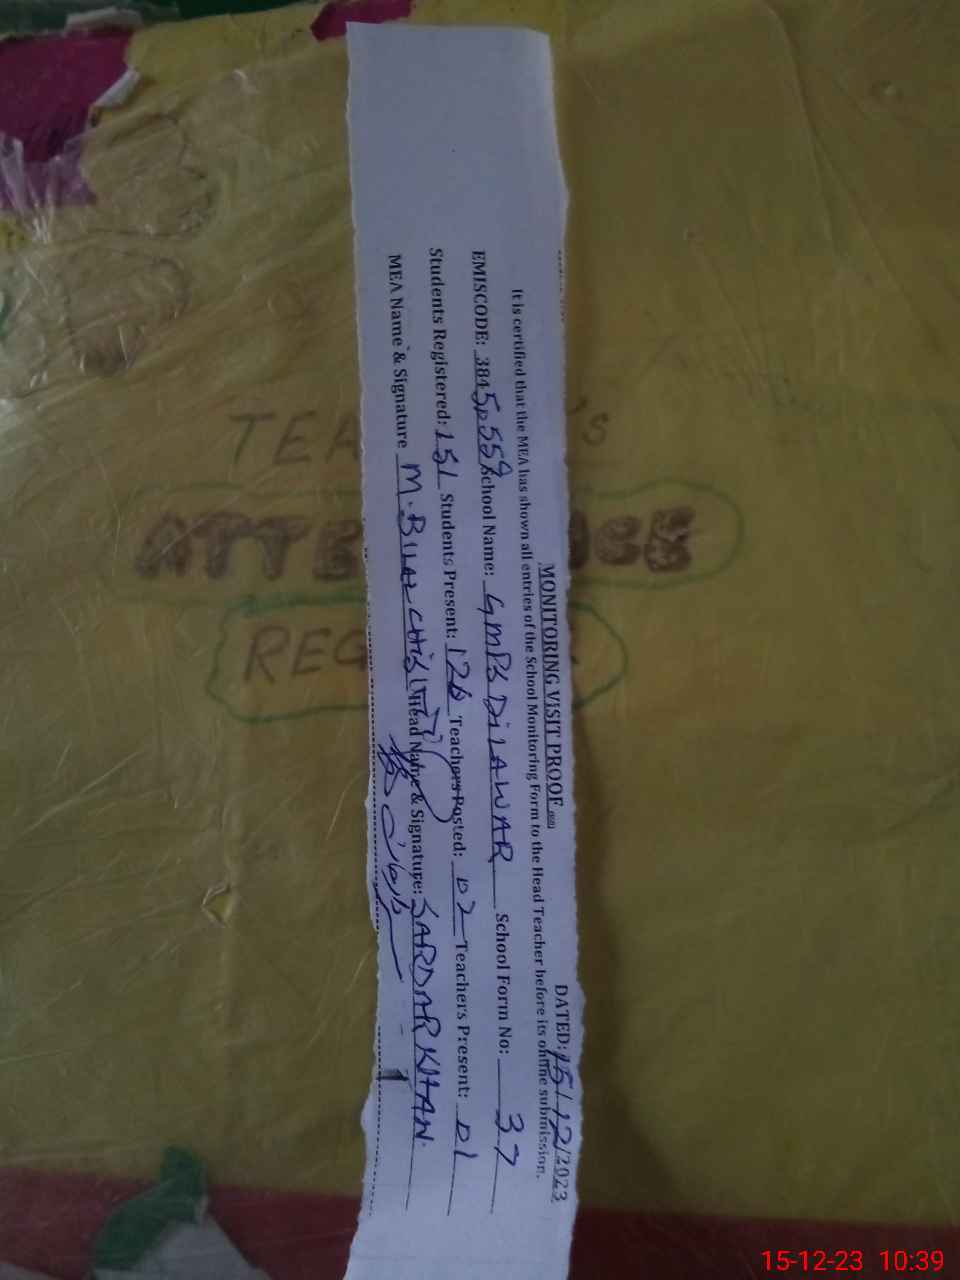 MONITORING VISIT PROOF
DATED: 15/12/2023
It is certified that the MEA has shown all entries of the School Monitoring Form to the Head Teacher before its online submission.
EMISCODE: School Name: GMPS DILAWAR School Form No: 37
Students Registered: 151 Students Present: 126 Teachers Posted: 02 Teachers Present: 01
MEA Name & Signature M. BILAL CHISHTI Head Name & Signature: SARDAR KHAN
TEA 'S
ATTE NCE
REG
15-12-23 10:39